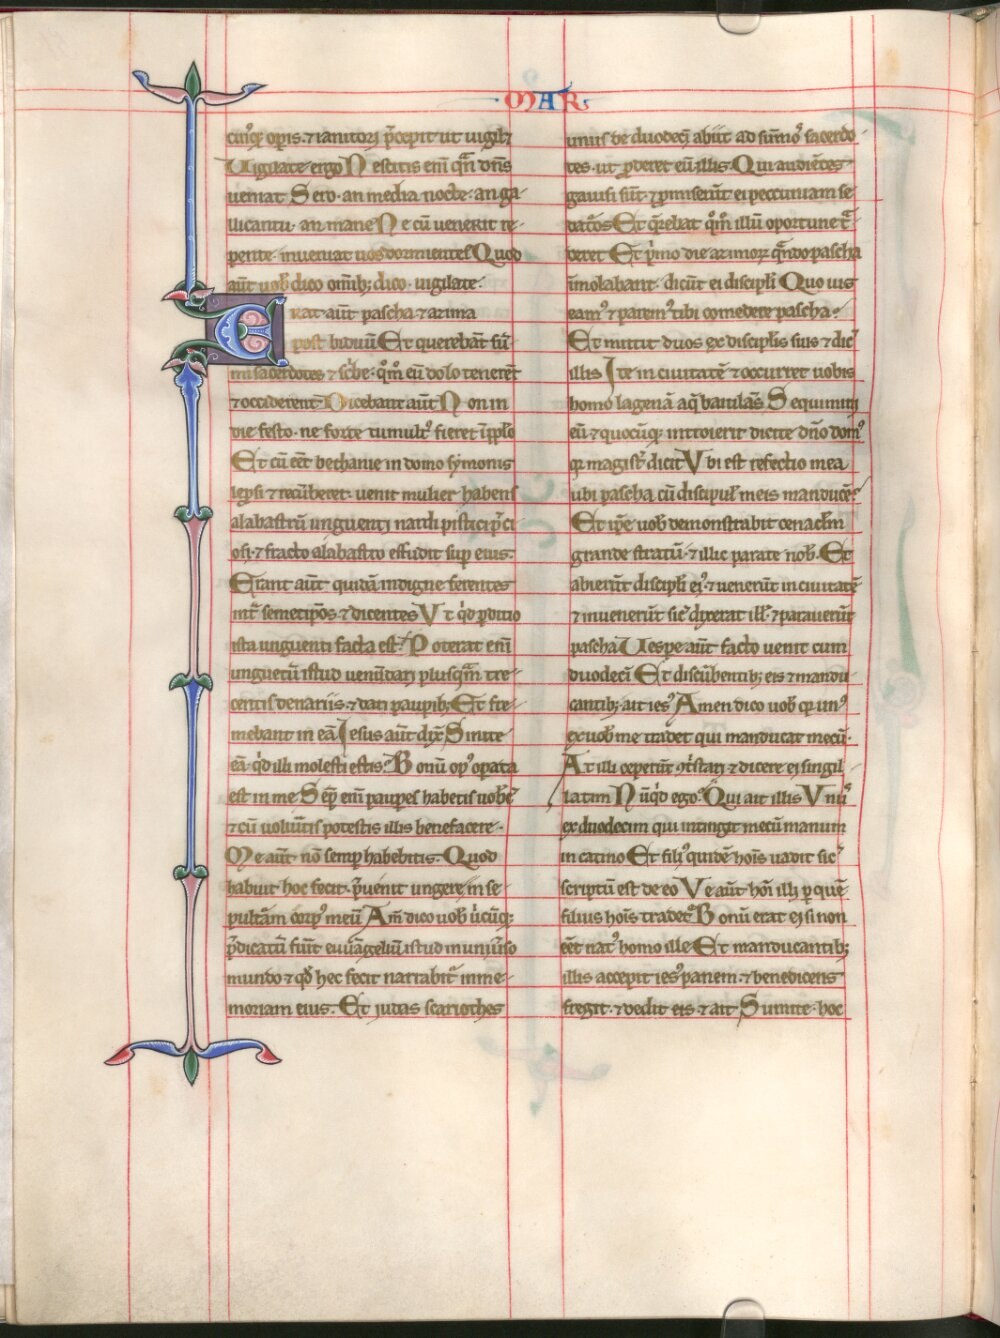 MAR
cuiꝰq; opis. ⁊ ianitori p̄cepit ut uigilꝫ
Uigilate ergo Nescitis eni᷑ qn̄ dn̄s
ueniat Sero. an media nocte. an ga
llicantu. an mane Ne cū uenerit re-
pente. inueniat uos dormientes Quod
aūt uob̄ dico om̄ib; dico. uigilate.
Erat aūt pascha ⁊ azima
post biduū Et querebāt sū
mi sacerdotes ⁊ sc̄be. q̊m̊ eū dolo tenerēt
⁊ occiderent Dicebant aūt Non in
die festo. ne forte tumultꝰ fieret ī pp̄lo
Et cū eēt bethanie in domo symonis
lep̄si ⁊ recūberet. uenit mulier habens
alabastrū unguenti nardi pistici p̄ci
osi. ⁊ fracto alabastro effudit sup̄ eius.
Erant aūt quidā indigne ferentes
int̄ semetip̄os ⁊ dicentes Ut q̇d p̄ditio
ista unguenti facta est. Poterat eni᷑
unguētū istud uenūdari plusquā̄ tre-
centis denariis. ⁊ dari paupib; Et fre-
mebant in eā Jesus aūt dix̄ Sinite
eā. q̇d illi molesti estis. Bonū opꝰ opata
est in me Semp̄ eni᷑ paupes habetis uob̄c̄
⁊ cū uolūtis potestis illis benefacere.
Me aūt nō semp habebitis. Quod
habuit hoc fecit. p̄uenit ungere in se-
pultām corpꝰ meū Am̄ dico uob̄ ūcūq;
p̄dicatū fuīt euuāgeliū istud in uniūso
mundo ⁊ qḋ hec fecit narrabit᷑ in me-
moriam eius. Et iudas scariothes
unus de duodecī abiit ad sūmoꝰ sacerdo-
tes. ut p̄deret eū illis. Qui audiētes
gauisi sūt. ⁊ p̄miserūt ei peccuniam se
datōs Et q̄rebat q̊m̊ illū oportune t̄
deret Et p̄mo die azimoꝝ q̄ndo pascha
īmolabant. dicūt ei discipli Quo uis
eamꝰ ⁊ paremꝰ tibi comedere pascha?
Et mittit duos ex disciplis suis ⁊ dic̄
illis Ite in ciuitatē ⁊ occurret uobis
homo lagenā aq̄ baiulās Sequimini
eū ⁊ quocūq; introierit dicite dn̄o domꝰ
qꝛ magist̄ dicit Ubi est refectio mea
ubi pascha cū discipul̄ meis manducē?
Et ip̄e uob̄ demonstrabit cenac̄lm
grande stratū. ⁊ illic parate nob̄. Et
abierūt discipli eiꝰ. ⁊ uenerūt in ciuitatē
⁊ inuenerūt sic̄ dixerat ill̄. ⁊ parauerūt
pascha Uespe aūt facto uenit cum
duodecī Et discūbentib; eis ⁊ mandu
cantib; ait iesꝰ Amen dico uob̄ qꝛ unꝰ
ex uob̄ me tradet qui manducat mecū.
At illi ceperūt ꝯt̄stari ⁊ dicere ei singil
latim Nūq̇d ego? Qui ait illis Unꝰ
ex duodecim qui intingit mecū manum
in catino Et filiꝰ quidē hoīs uadit sic̄
scriptū est de eo Ve aūt hoī illi p̲ quē
filius hoīs tradet᷑ Bonū erat ei si non
eēt natꝰ homo ille Et manducantib;
illis accepit iesꝰ panem. ⁊ benedicens
fregit. ⁊ dedit eis. ⁊ ait Sumite. hoc